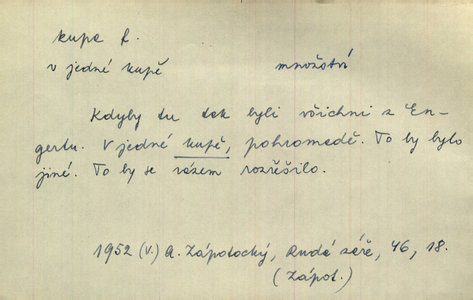 kupa f.
v jedné kupě množství
Kdyby tu tak byli všichni z En-
gertu. V jedné kupě, pohromadě. To by bylo
jiné. To by se rázem rozřešilo.
1952 (V.) A. Zápotocký, Rudá záře, 46, 18.
(Zápot.)